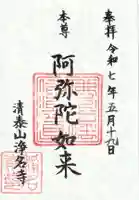 奉拝 令和七年五月十九日
本尊
阿弥陀如来
清泰山浄名寺